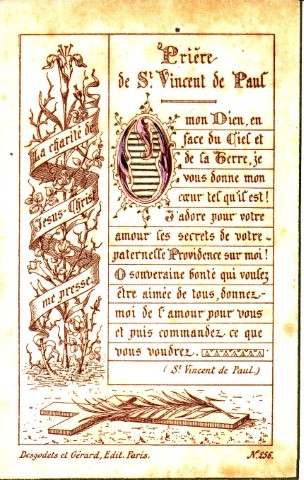 Prière
de St Vincent de Paul
O mon Dieu, en
face du Ciel et
de la Terre, je
vous donne mon
cœur tel qu'il est!
J'adore pour votre
amour les secrets de votre-
paternelle Providence sur moi!
O souveraine bonté qui voulez
être aimée de tous, donnez-
moi de l'amour pour vous
et puis commandez ce que
vous voudrez.
(St Vincent de Paul.)
La charité de
Jesus-Christ
me presse.
Desgodets et Gérard, Edit. Paris.
No. 156.